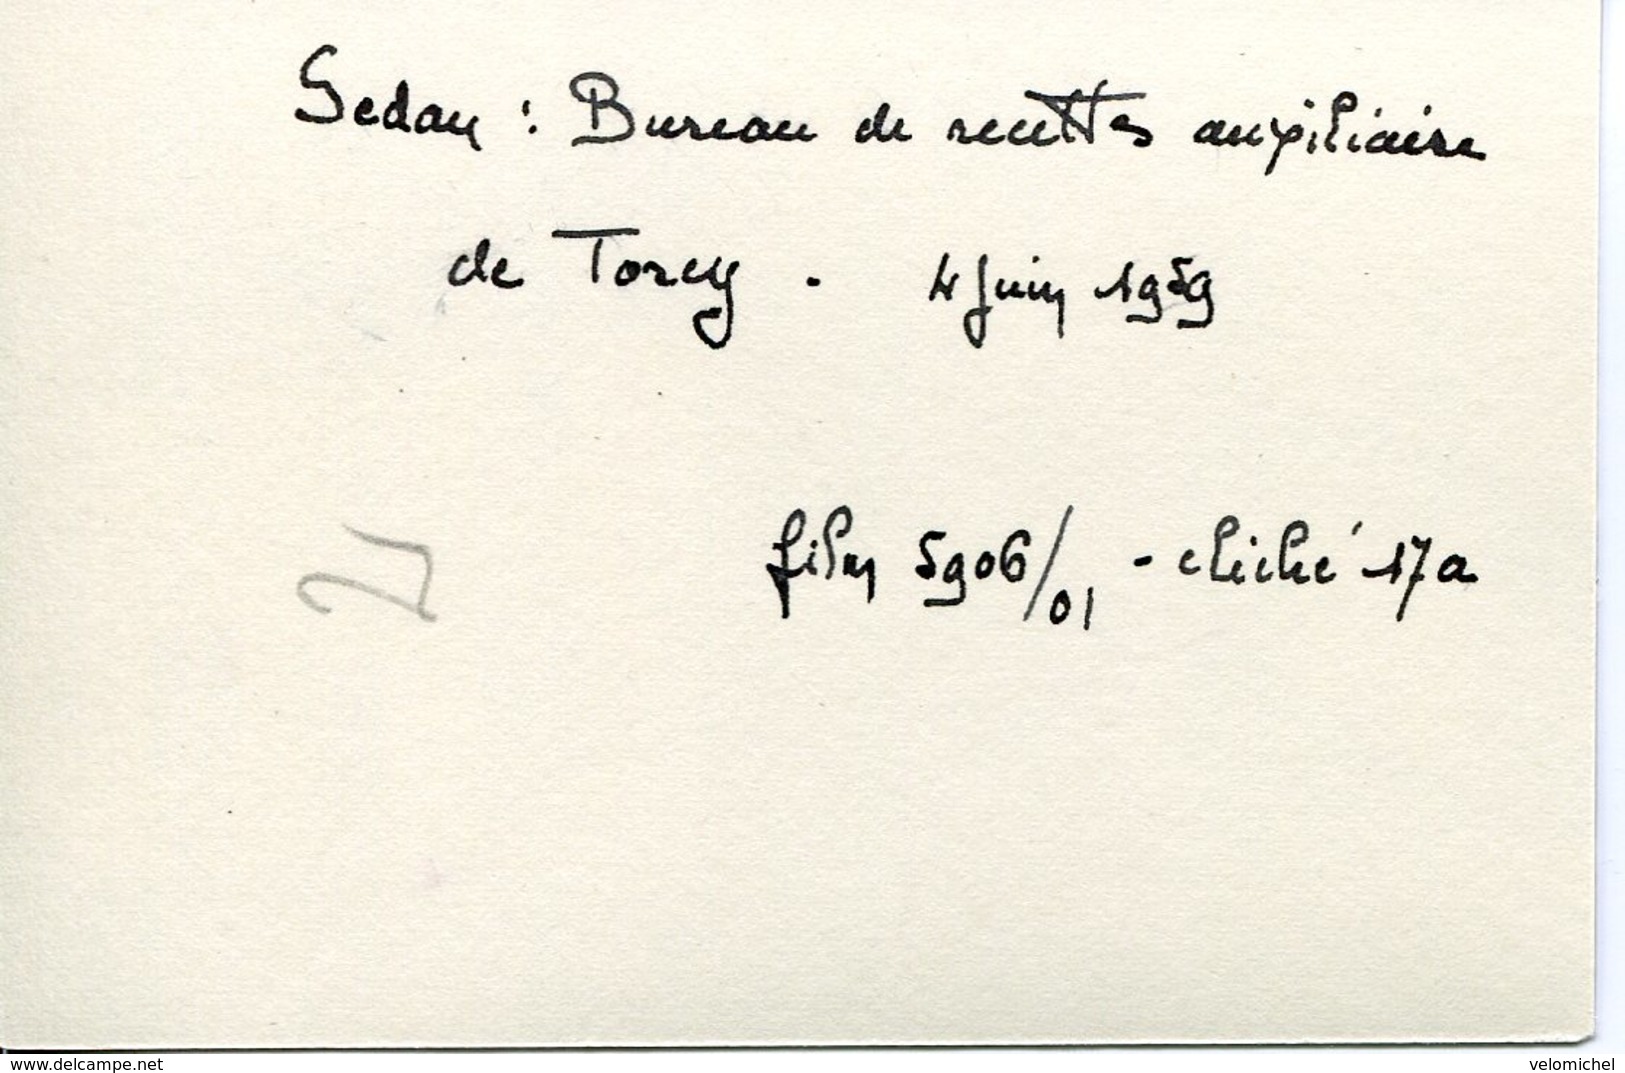 Sedan : Bureau de recettes auxiliaire
de Torcy . 4 Juin 1959
film 5906/01 - cliché 17a
delcampe.net
velomichel